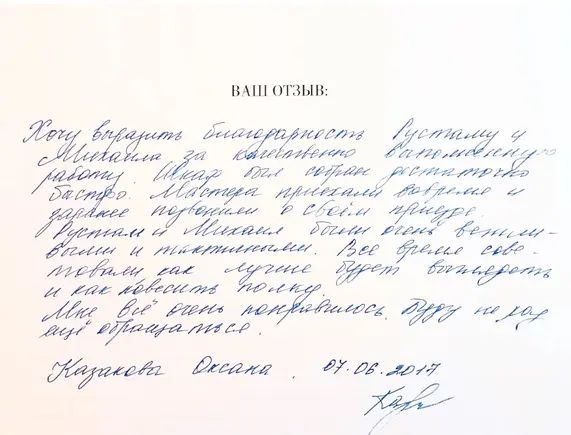 ВАШ ОТЗЫВ:
Хочу выразить благодарность Рустаму и
Михаила за качественно выполненную
работу. Шкаф был собран достаточно
быстро. Мастера приехали вовремя и
заранее позвонили о своём приезде.
Рустам и Михаил были очень вежли-
выми и тактичными. Все время сове-
товали как лучше будет выглядеть
и как повесить полку.
Мне всё очень понравилось. Буду не раз
ещё обращаться.
Казакова Оксана. 07.06.2017